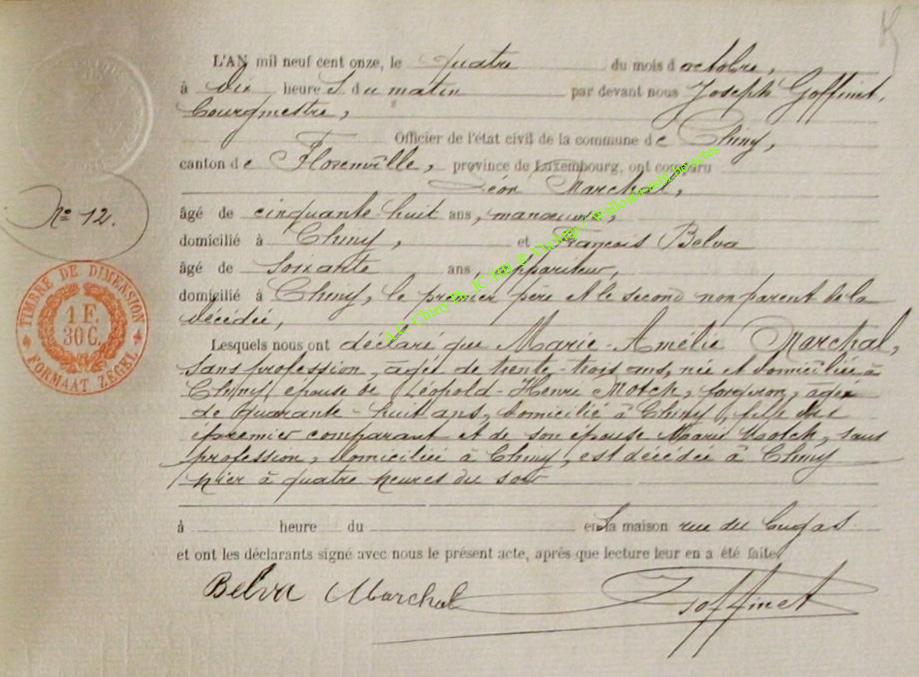 L'AN mil neuf cent onze, le quatre du mois d'octobre,
à dix heures du matin par devant nous Joseph Goffinet,
bourgmestre,
Officier de l'état civil de la commune de Chiny,
canton de Florenville, province de Luxembourg, ont comparu
Léon Marchal,
âgé de cinquante-huit ans, manœuvre,
Nº 12.
domicilié à Chiny, et François Belva
âgé de soixante ans, appariteur,
domicilié à Chiny, le premier père et le second non parent de la
décédée,
TIMBRE DE DIMENSION
1 F.
30 C.
FORMAAT ZEGEL
Lesquels nous ont déclaré que Marie-Amélie Marchal,
sans profession, âgée de trente-trois ans, née et domiciliée à
Chiny, épouse de Léopold-Henri Motch, forgeron, âgé
de quarante-huit ans, domicilié à Chiny, fille du
premier comparant et de son épouse Marie Motch, sans
profession, domiciliée à Chiny, est décédée à Chiny
hier à quatre heures du soir
à heure du en la maison rue du
et ont les déclarants signé avec nous le présent acte, après que lecture leur en a été faite.
Belva Marchal Goffinet